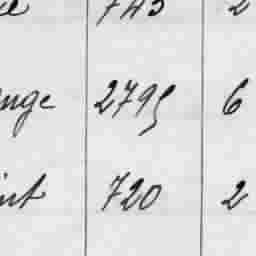 743 2
nge 2795 6
int 720 2